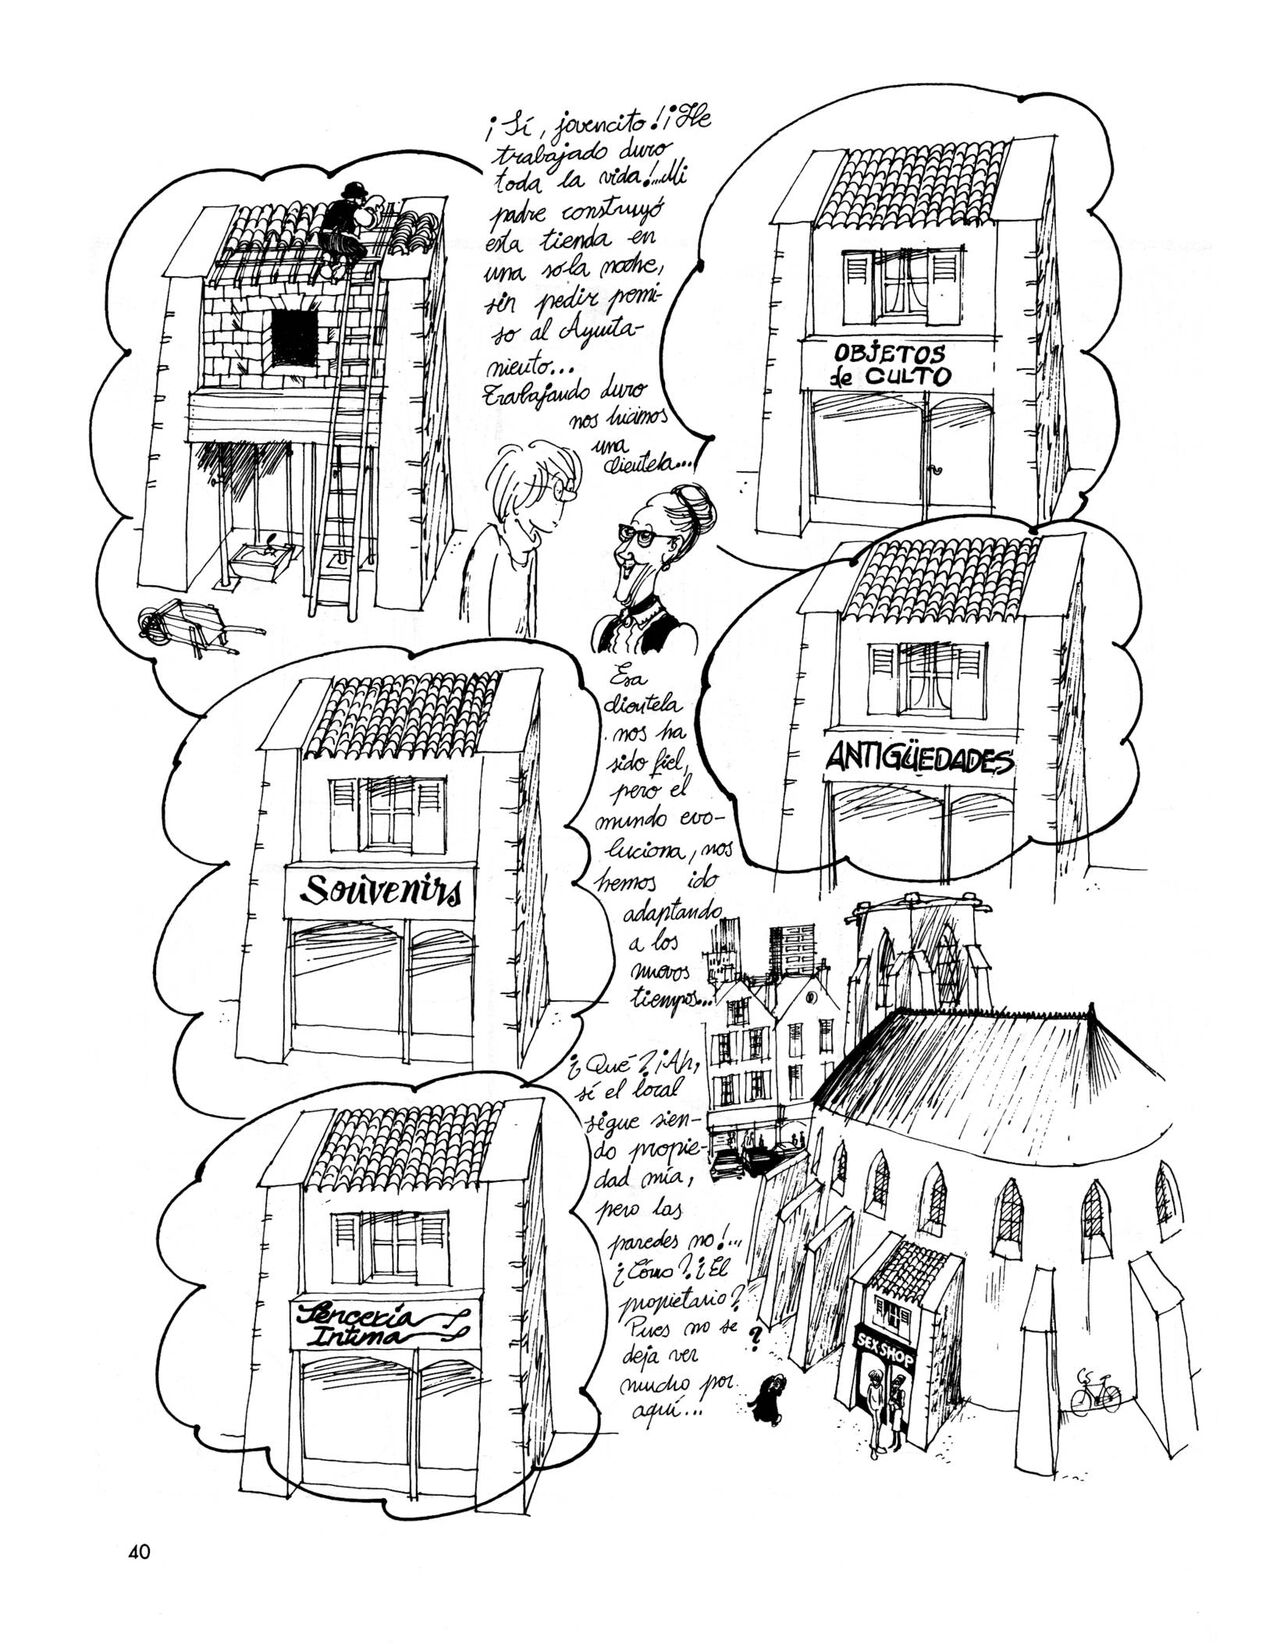 ¡Sí, jovencito! ¡He
trabajado duro
toda la vida!...Mi
padre construyó
esta tienda en
una sola noche,
sin pedir permi-
so al Ayunta-
miento...
Trabajando duro
nos hicimos
una
clientela...
OBJETOS
de CULTO
ANTIGÜEDADES
Esa
clientela
nos ha
sido fiel,
pero el
mundo evo-
luciona, nos
hemos ido
adaptando
a los
nuevos
tiempos...
Souvenirs
Lencería
Intima
¿Qué? ¡Ah,
sí el local
sigue sien-
do propie-
dad mía,
pero las
paredes no!...
¿Cómo? ¿El
propietario?
Pues no se
deja ver
mucho por
aquí...
?
SEX SHOP
40